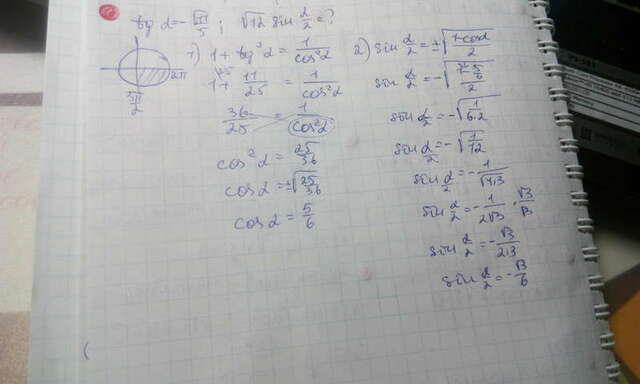 tg α = -√11/5 ; √12 sin α/2 = ?
1) 1 + tg²α = 1/cos²α
1 + 11/25 = 1/cos²α
36/25 = 1/cos²α
cos²α = 25/36
cos α = ±√25/36
cos α = 5/6
2π
3π/2
2) sin α/2 = ±√1-cosα/2
sin α/2 = -√1-5/6/2
sin α/2 = -√1/6·2
sin α/2 = -√1/12
sin α/2 = -1/√4·3
sin α/2 = -1/2√3 · √3/√3
sin α/2 = -√3/2·3
sin α/2 = -√3/6